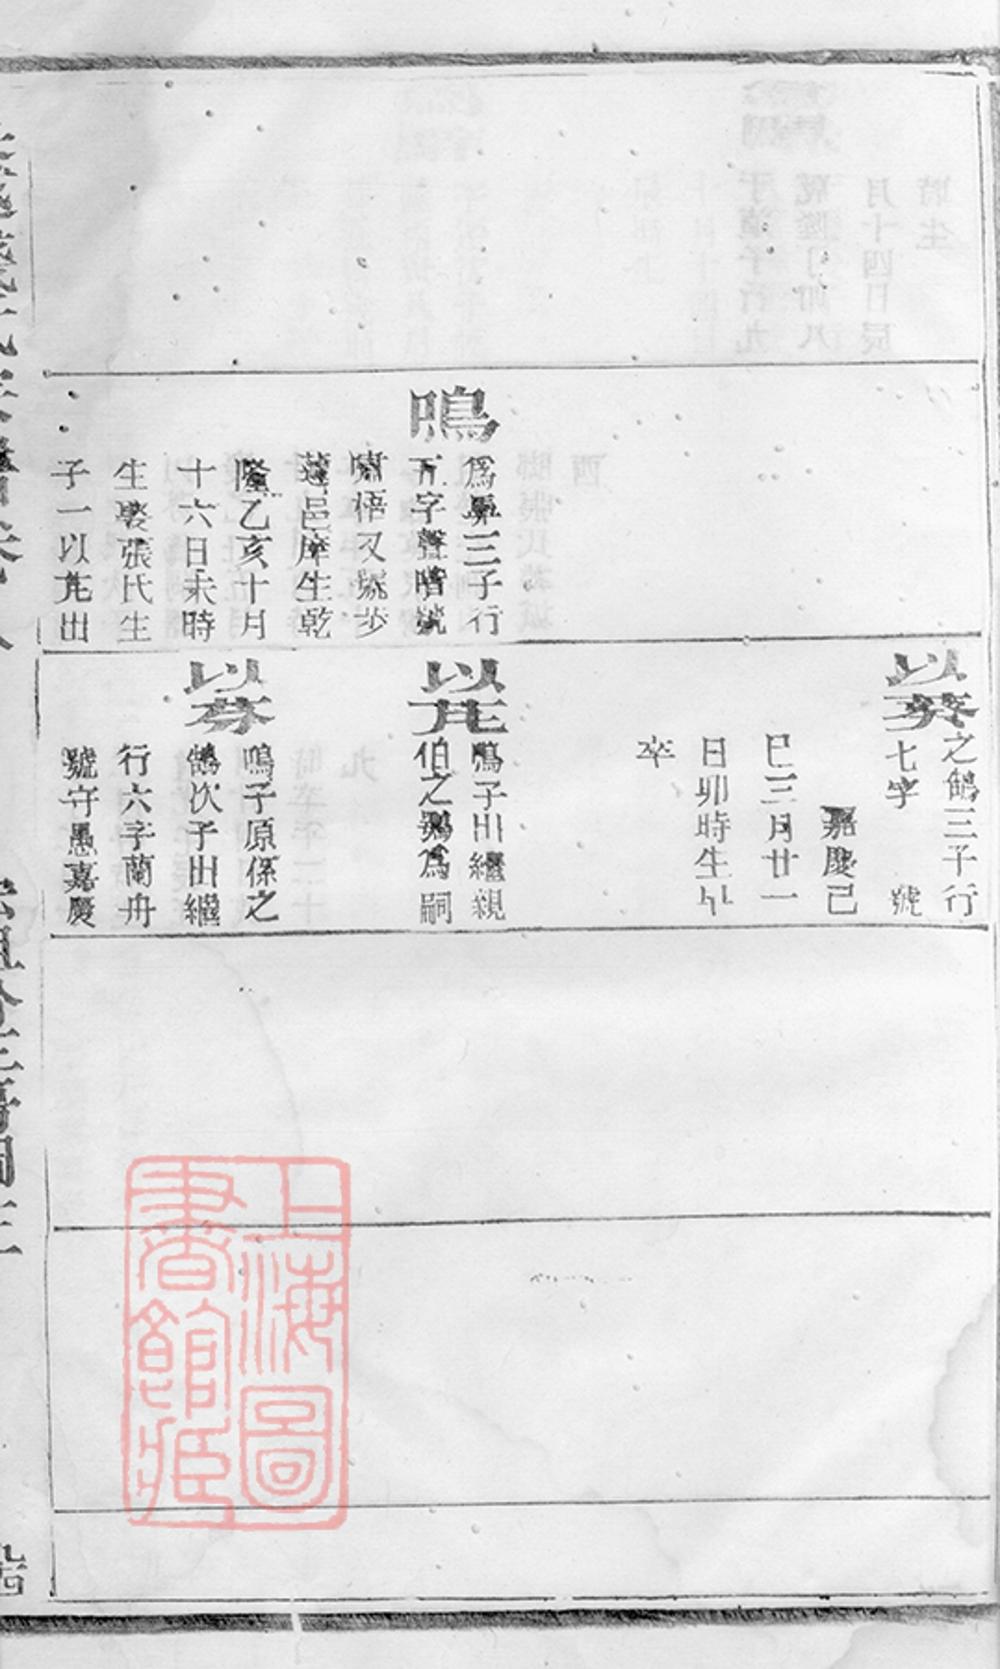 鳴
三子行
五字聲
嘯梧又號步
邑庠生乾
隆乙亥十月
十六日未時
生娶張氏生
子一以芘出
以葵
之鶴三子行
七字 號
嘉慶己
巳三月廿一
日卯時生
卒
以芘
鳴子出繼親
伯之鶚為嗣
以芬
鳴子原係之
鶴次子出繼
行六字蘭舟
號守愚嘉慶
上海圖書館藏